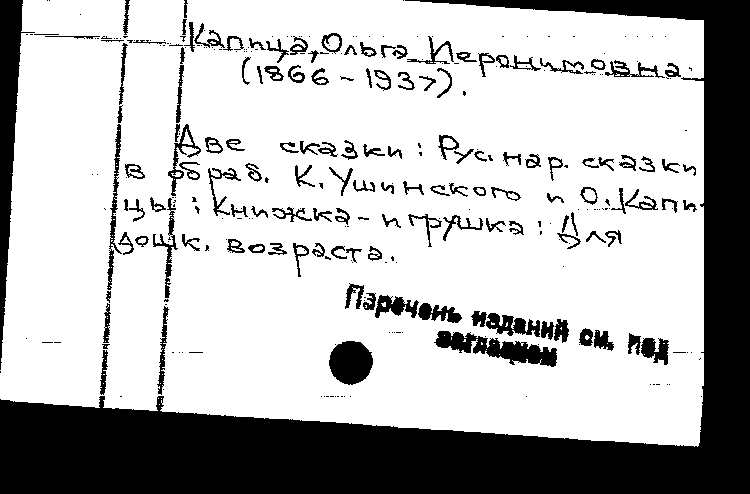 Капица, Ольга Иеронимовна.
(1866 - 1937).
Две сказки : Рус. нар. сказки
в обраб. К. Ушинского и О. Капи-
цы : Книжка-игрушка : Для
дошк. возраста.
Перечень изданий см. под
заглавием